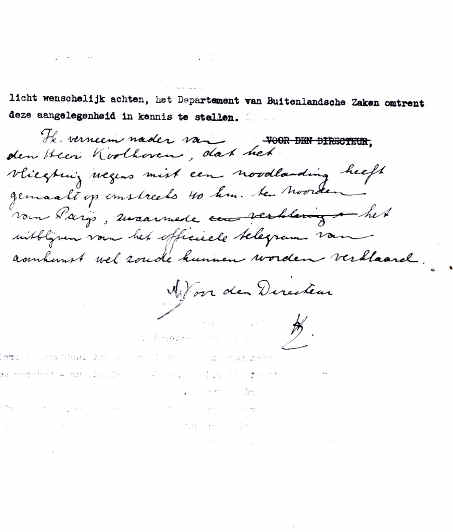 licht wenschelijk achten, het Departement van Buitenlandsche Zaken omtrent
deze aangelegenheid in kennis te stellen.
VOOR DEN DIRECTEUR,
Ik verneem nader van
den Heer Koolhoven, dat het
vliegtuig wegens mist een noodlanding heeft
gemaakt op omstreeks 40 km. ten Noorden
van Parijs, zwaarmede een verklaring het
uitblijven van het officieele telegram van
aankomst wel zoude kunnen worden verklaard.
Voor den Directeur